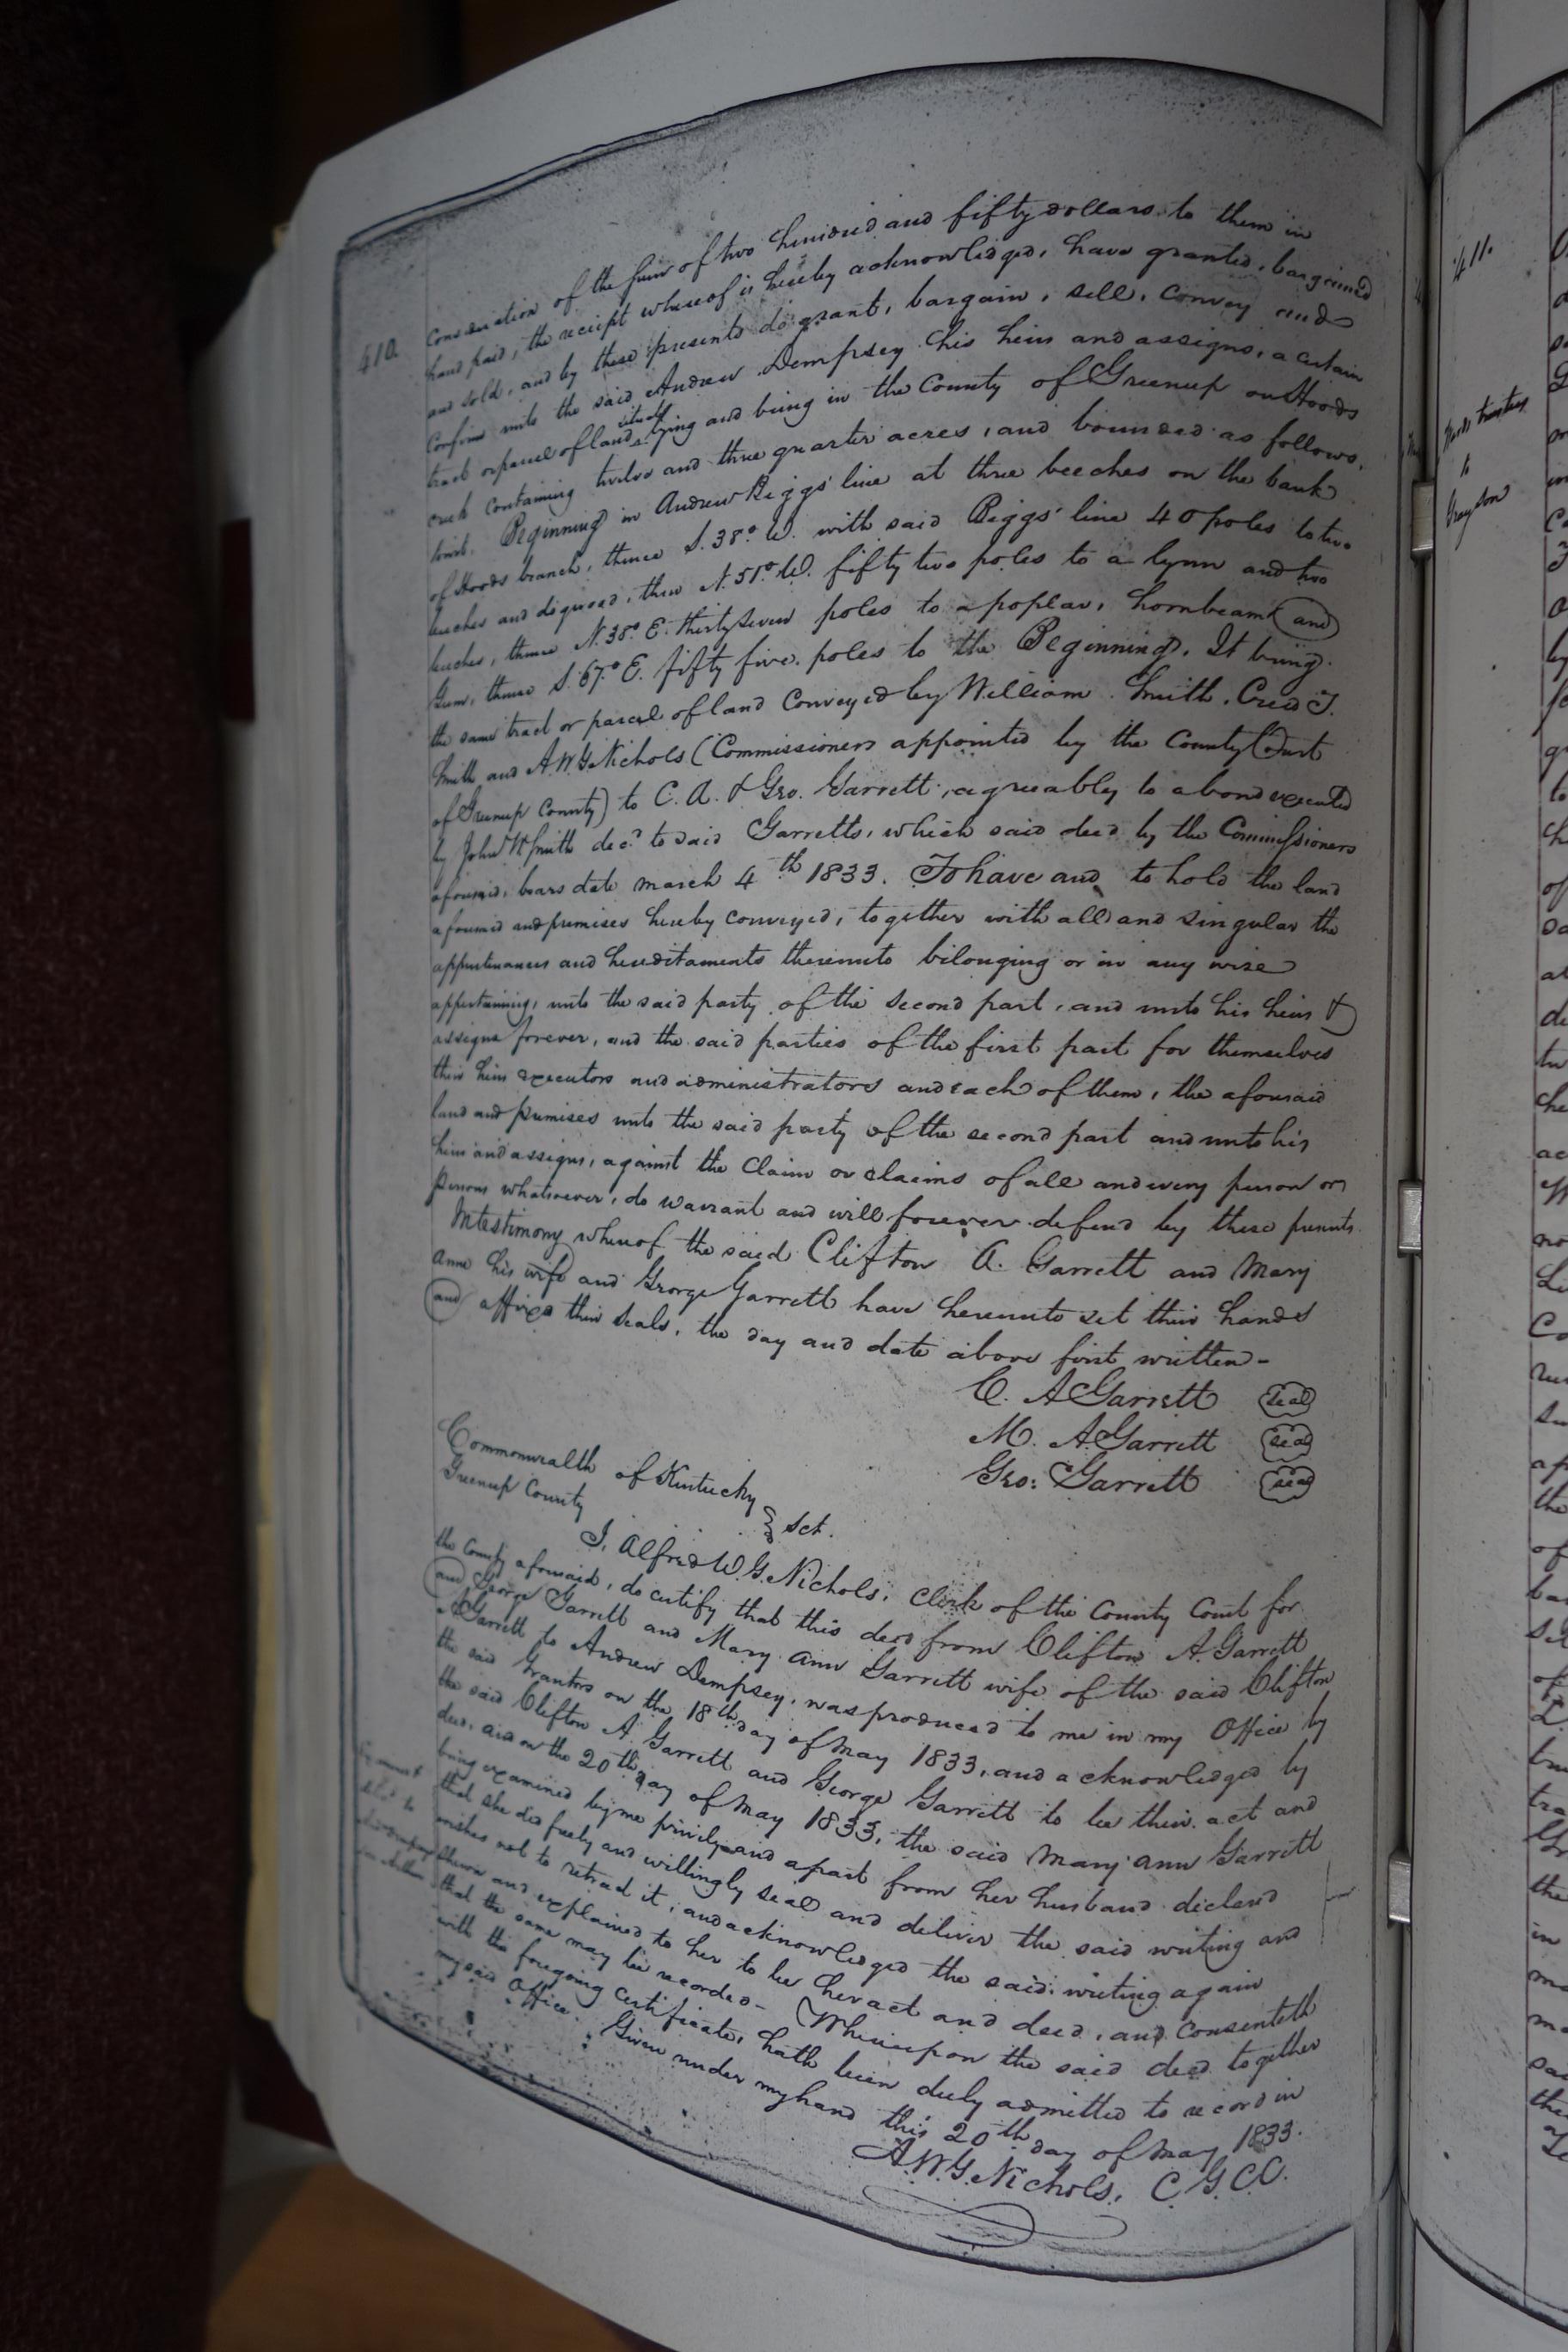 410.
Consideration of the sum of two hundred and fifty dollars to them in
hand paid, the receipt whereof is hereby acknowledged, have granted, bargained
and sold, and by these presents do grant, bargain, sell, convey and
confirm unto the said Andrew Dempsey his heirs and assigns, a certain
tract or parcel of land situate lying and being in the County of Greenup on Hoods
creek containing twelve and three quarter acres, and bounded as follows,
towit. Beginning in Andrew Biggs' line at three beeches on the bank
of Hoods branch, thence S. 38° W. with said Biggs' line 40 poles to two
beeches and dogwood, then N. 51° W. fifty two poles to a lynn and two
beeches, thence N. 38° E. thirty seven poles to a poplar, hornbeam and
Gum, thence S. 67° E. fifty five poles to the Beginning. It being
the same tract or parcel of land conveyed by William Smith, Cred T.
Smith and A.W.G. Nichols (Commissioners appointed by the County Court
of Greenup County) to C. A. & Geo. Garrett, agreeably to a bond executed
by John Smith decd. to said Garretts, which said deed by the Commissioners
aforesaid, bears date march 4th 1833. To have and to hold the land
aforesaid and premises hereby conveyed, together with all and singular the
appurtenances and hereditaments thereunto belonging or in any wise
appertaining, unto the said party of the second part, and unto his heirs &
assigns forever, and the said parties of the first part for themselves
their heirs executors and administrators and each of them, the aforesaid
land and premises unto the said party of the second part and unto his
heirs and assigns, against the claim or claims of all and every person or
persons whatsoever, do warrant and will forever defend by these presents.
In testimony whereof the said Clifton A. Garrett and Mary
Anne his wife and George Garrett have hereunto set their hands
and affixed their seals, the day and date above first written-
C. A Garrett seal
M. A Garrett seal
Geo: Garrett seal
Commonwealth of Kentucky
Greenup County } Sct.
I, Alfred W. G. Nichols, Clerk of the County Court for
the County aforesaid, do certify that this deed from Clifton A. Garrett
and George Garrett and Mary Ann Garrett wife of the said Clifton
A Garrett to Andrew Dempsey, was produced to me in my Office by
the said Grantors on the 18th day of May 1833, and acknowledged by
the said Clifton A. Garrett and George Garrett to be their act and
deed, and on the 20th day of May 1833, the said Mary Ann Garrett
being examined by me privily and apart from her husband declared
that she did freely and willingly seal and deliver the said writing and
wishes not to retract it, and acknowledged the said writing again
shewn and explained to her to be her act and deed, and consenteth
that the same may be recorded- Whereupon the said deed together
with the foregoing certificate, hath been duly admitted to record in
my said Office. Given under my hand this 20th day of May 1833.
A.W.G. Nichols, C.G.C.C.
411.
trustees
to
Grayson